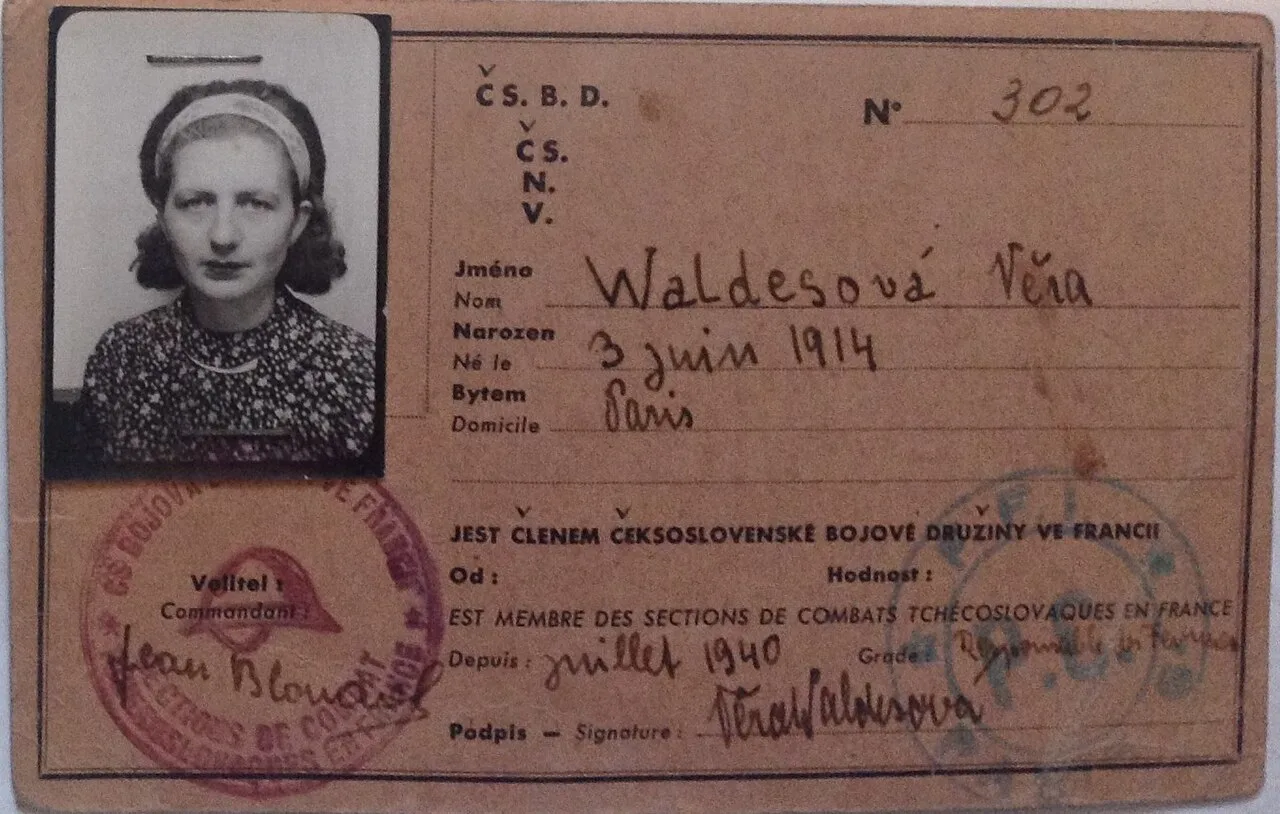 ČS. B. D.
N° 302
ČS.
N.
V.
Jméno
Nom Waldesová Věra
Narozen
Né le 3 juin 1914
Bytem
Domicile Paris
JEST ČLENEM ČEKSOSLOVENSKÉ BOJOVÉ DRUŽINY VE FRANCII
Od : Hodnost :
EST MEMBRE DES SECTIONS DE COMBATS TCHÉCOSLOVAQUES EN FRANCE
Depuis : juillet 1940 Grade : Responsable des Femmes
Podpis — Signature : Věra Waldesova
Velitel :
Commandant :
Jean
ČS BOJOVÁ VE FRANCII
SECTIONS DE COMBAT
TCHECOSLOVAQUES EN FRANCE
F.F.I.